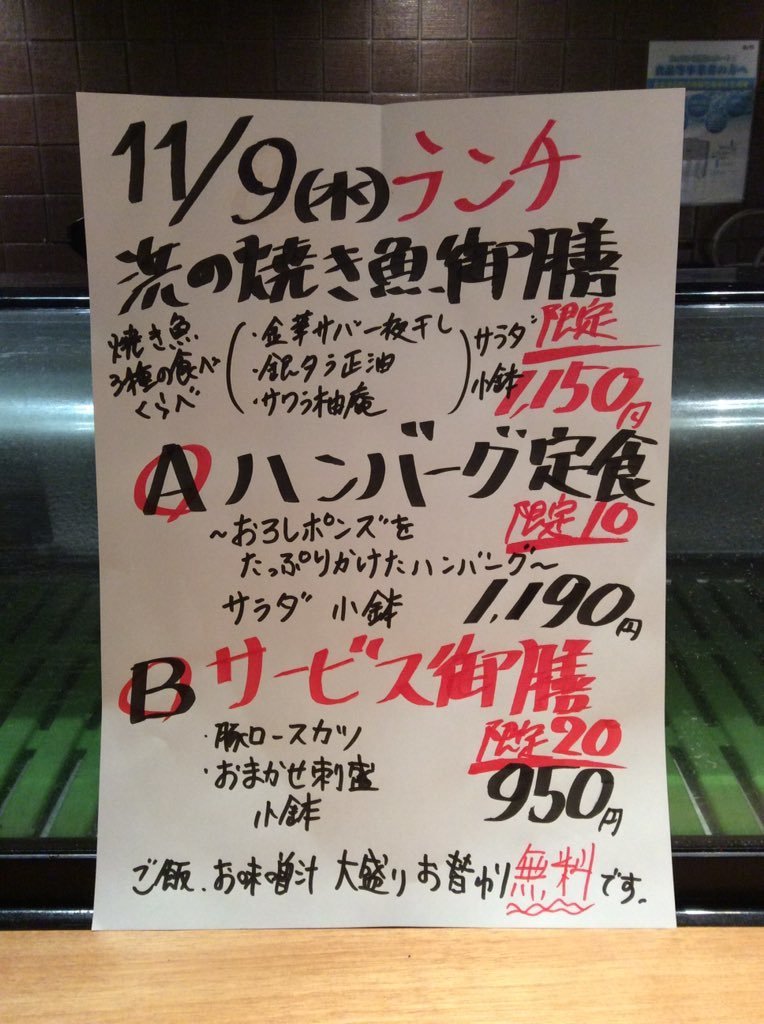 11/9(水)ランチ
浜の焼き魚御膳
焼き魚
3種の食べ
くらべ
・金華サバ一夜干し
・銀タラ正油
・サワラ柚庵
サラダ
小鉢
限定
1,150円
Aハンバーグ定食
限定10
～おろしポンズを
たっぷりかけたハンバーグ～
サラダ 小鉢 1,190円
Bサービス御膳
限定20
・豚ロースカツ
・おまかせ刺盛
小鉢
950円
ご飯、お味噌汁 大盛り お替わり無料です。
食品等事業者の方へ